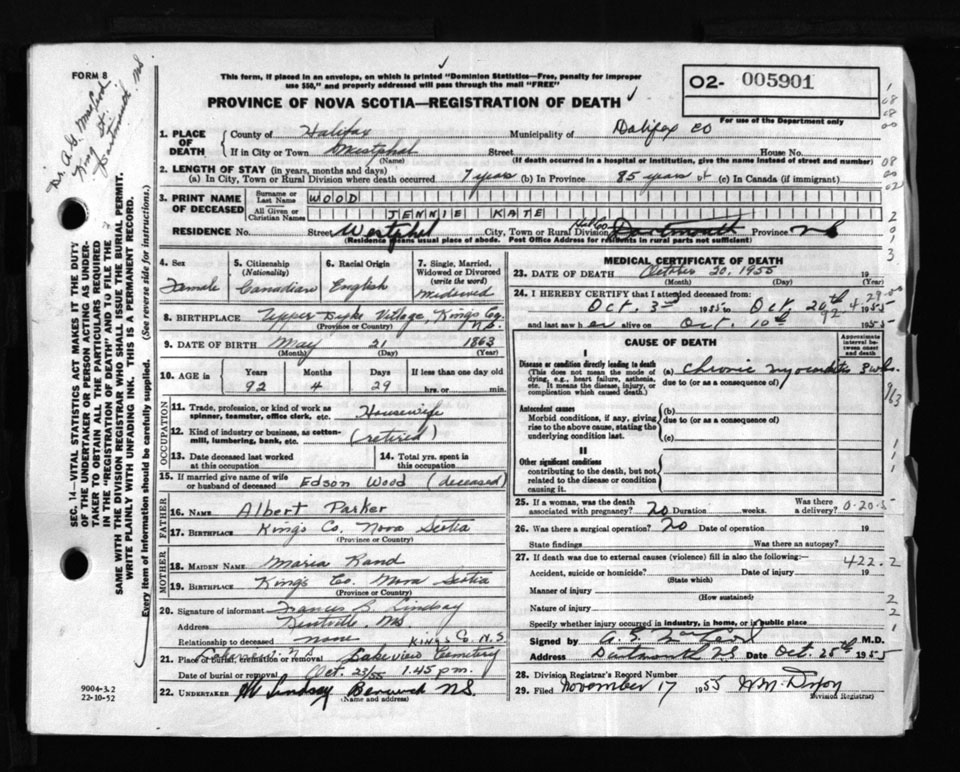 FORM 8
This form, if placed in an envelope, on which is printed "Dominion Statistics—Free, penalty for improper
use $50," and properly addressed will pass through the mail "FREE"
PROVINCE OF NOVA SCOTIA—REGISTRATION OF DEATH
O2- 005901
For use of the Department only
Dr. A. G. MacLeod
King St.
Dartmouth NS
SEC. 14—VITAL STATISTICS ACT MAKES IT THE DUTY
OF THE UNDERTAKER OR PERSON ACTING AS UNDER-
TAKER TO OBTAIN ALL THE PARTICULARS REQUIRED
IN THE "REGISTRATION OF DEATH" AND TO FILE THE
SAME WITH THE DIVISION REGISTRAR WHO SHALL ISSUE THE BURIAL PERMIT.
WRITE PLAINLY WITH UNFADING INK. THIS IS A PERMANENT RECORD.
Every item of information should be carefully supplied. (See reverse side for instructions.)
1. PLACE OF DEATH County of Halifax Municipality of Halifax Co
If in City or Town Westphal (Name) Street House No.
(If death occurred in a hospital or institution, give the name instead of street and number)
2. LENGTH OF STAY (in years, months and days)
(a) In City, Town or Rural Division where death occurred 7 years (b) In Province 85 years (c) In Canada (if immigrant)
3. PRINT NAME OF DECEASED Surname or Last Name WOOD
All Given or Christian Names JENNIE KATE
RESIDENCE No. Street Westphal City, Town or Rural Division Hal Co Dartmouth Province NS
(Residence means usual place of abode. Post Office Address for residents in rural parts not sufficient)
4. Sex Female
5. Citizenship (Nationality) Canadian
6. Racial Origin English
7. Single, Married, Widowed or Divorced (write the word) Widowed
8. BIRTHPLACE Upper Dyke Village, Kings Co. N.S.
(Province or Country)
9. DATE OF BIRTH May 21 1863
(Month) (Day) (Year)
10. AGE in Years 92 Months 4 Days 29 If less than one day
hrs. or min.
OCCUPATION
11. Trade, profession or kind of work as spinner, teamster, office clerk, etc. Housewife
12. Kind of industry or business, as cotton-mill, lumbering, bank, etc. (retired)
13. Date deceased last worked at this occupation
14. Total yrs. spent in this occupation
15. If married give name of wife or husband of deceased Edson Wood (deceased)
FATHER
16. NAME Albert Parker
17. BIRTHPLACE Kings Co, Nova Scotia
(Province or Country)
MOTHER
18. MAIDEN NAME Maria Rand
19. BIRTHPLACE Kings Co. Nova Scotia
(Province or Country)
20. Signature of informant Francis B. Lindsay
Address Kentville, NS
Relationship to deceased none Kings Co. N.S
21. Place of burial, cremation or removal Lakeview N.S Lakeview Cemetery
Date of burial or removal Oct. 23/55 1.45 pm.
22. UNDERTAKER Lindsay Berwick NS.
(Name and address)
9004-3.2
22-10-52
MEDICAL CERTIFICATE OF DEATH
23. DATE OF DEATH October 20, 1955 19
(Month) (Day) (Year)
24. I HEREBY CERTIFY that I attended deceased from:
Oct. 3rd 1955 to Oct. 20th 1955
and last saw her alive on Oct. 10th 1955
CAUSE OF DEATH
Approximate interval between onset and death
I
Disease or condition directly leading to death
(This does not mean the mode of dying, e.g., heart failure, asthenia, etc. It means the disease, injury, or complication which caused death.)
(a) Chronic myocarditis 3 wks.
due to (or as a consequence of)
Antecedent causes
Morbid conditions, if any, giving rise to the above cause, stating the underlying condition last.
(b)
due to (or as a consequence of)
(c)
II
Other significant conditions
contributing to the death, but not related to the disease or condition causing it.
25. If a woman, was the death associated with pregnancy? No Duration weeks. Was there a delivery?
0-20-5
26. Was there a surgical operation? No Date of operation 19
State findings Was there an autopsy?
27. If death was due to external causes (violence) fill in also the following:—
422.2
Accident, suicide or homicide? (State which) Date of injury 19
Manner of injury
(How sustained)
Nature of injury
Specify whether injury occurred in industry, in home, or in public place
Signed by A. G. MacLeod M.D.
Address Dartmouth N.S Date Oct. 25th 1955
28. Division Registrar's Record Number
29. Filed November 17 1955 W.M. Dixon
Division Registrar